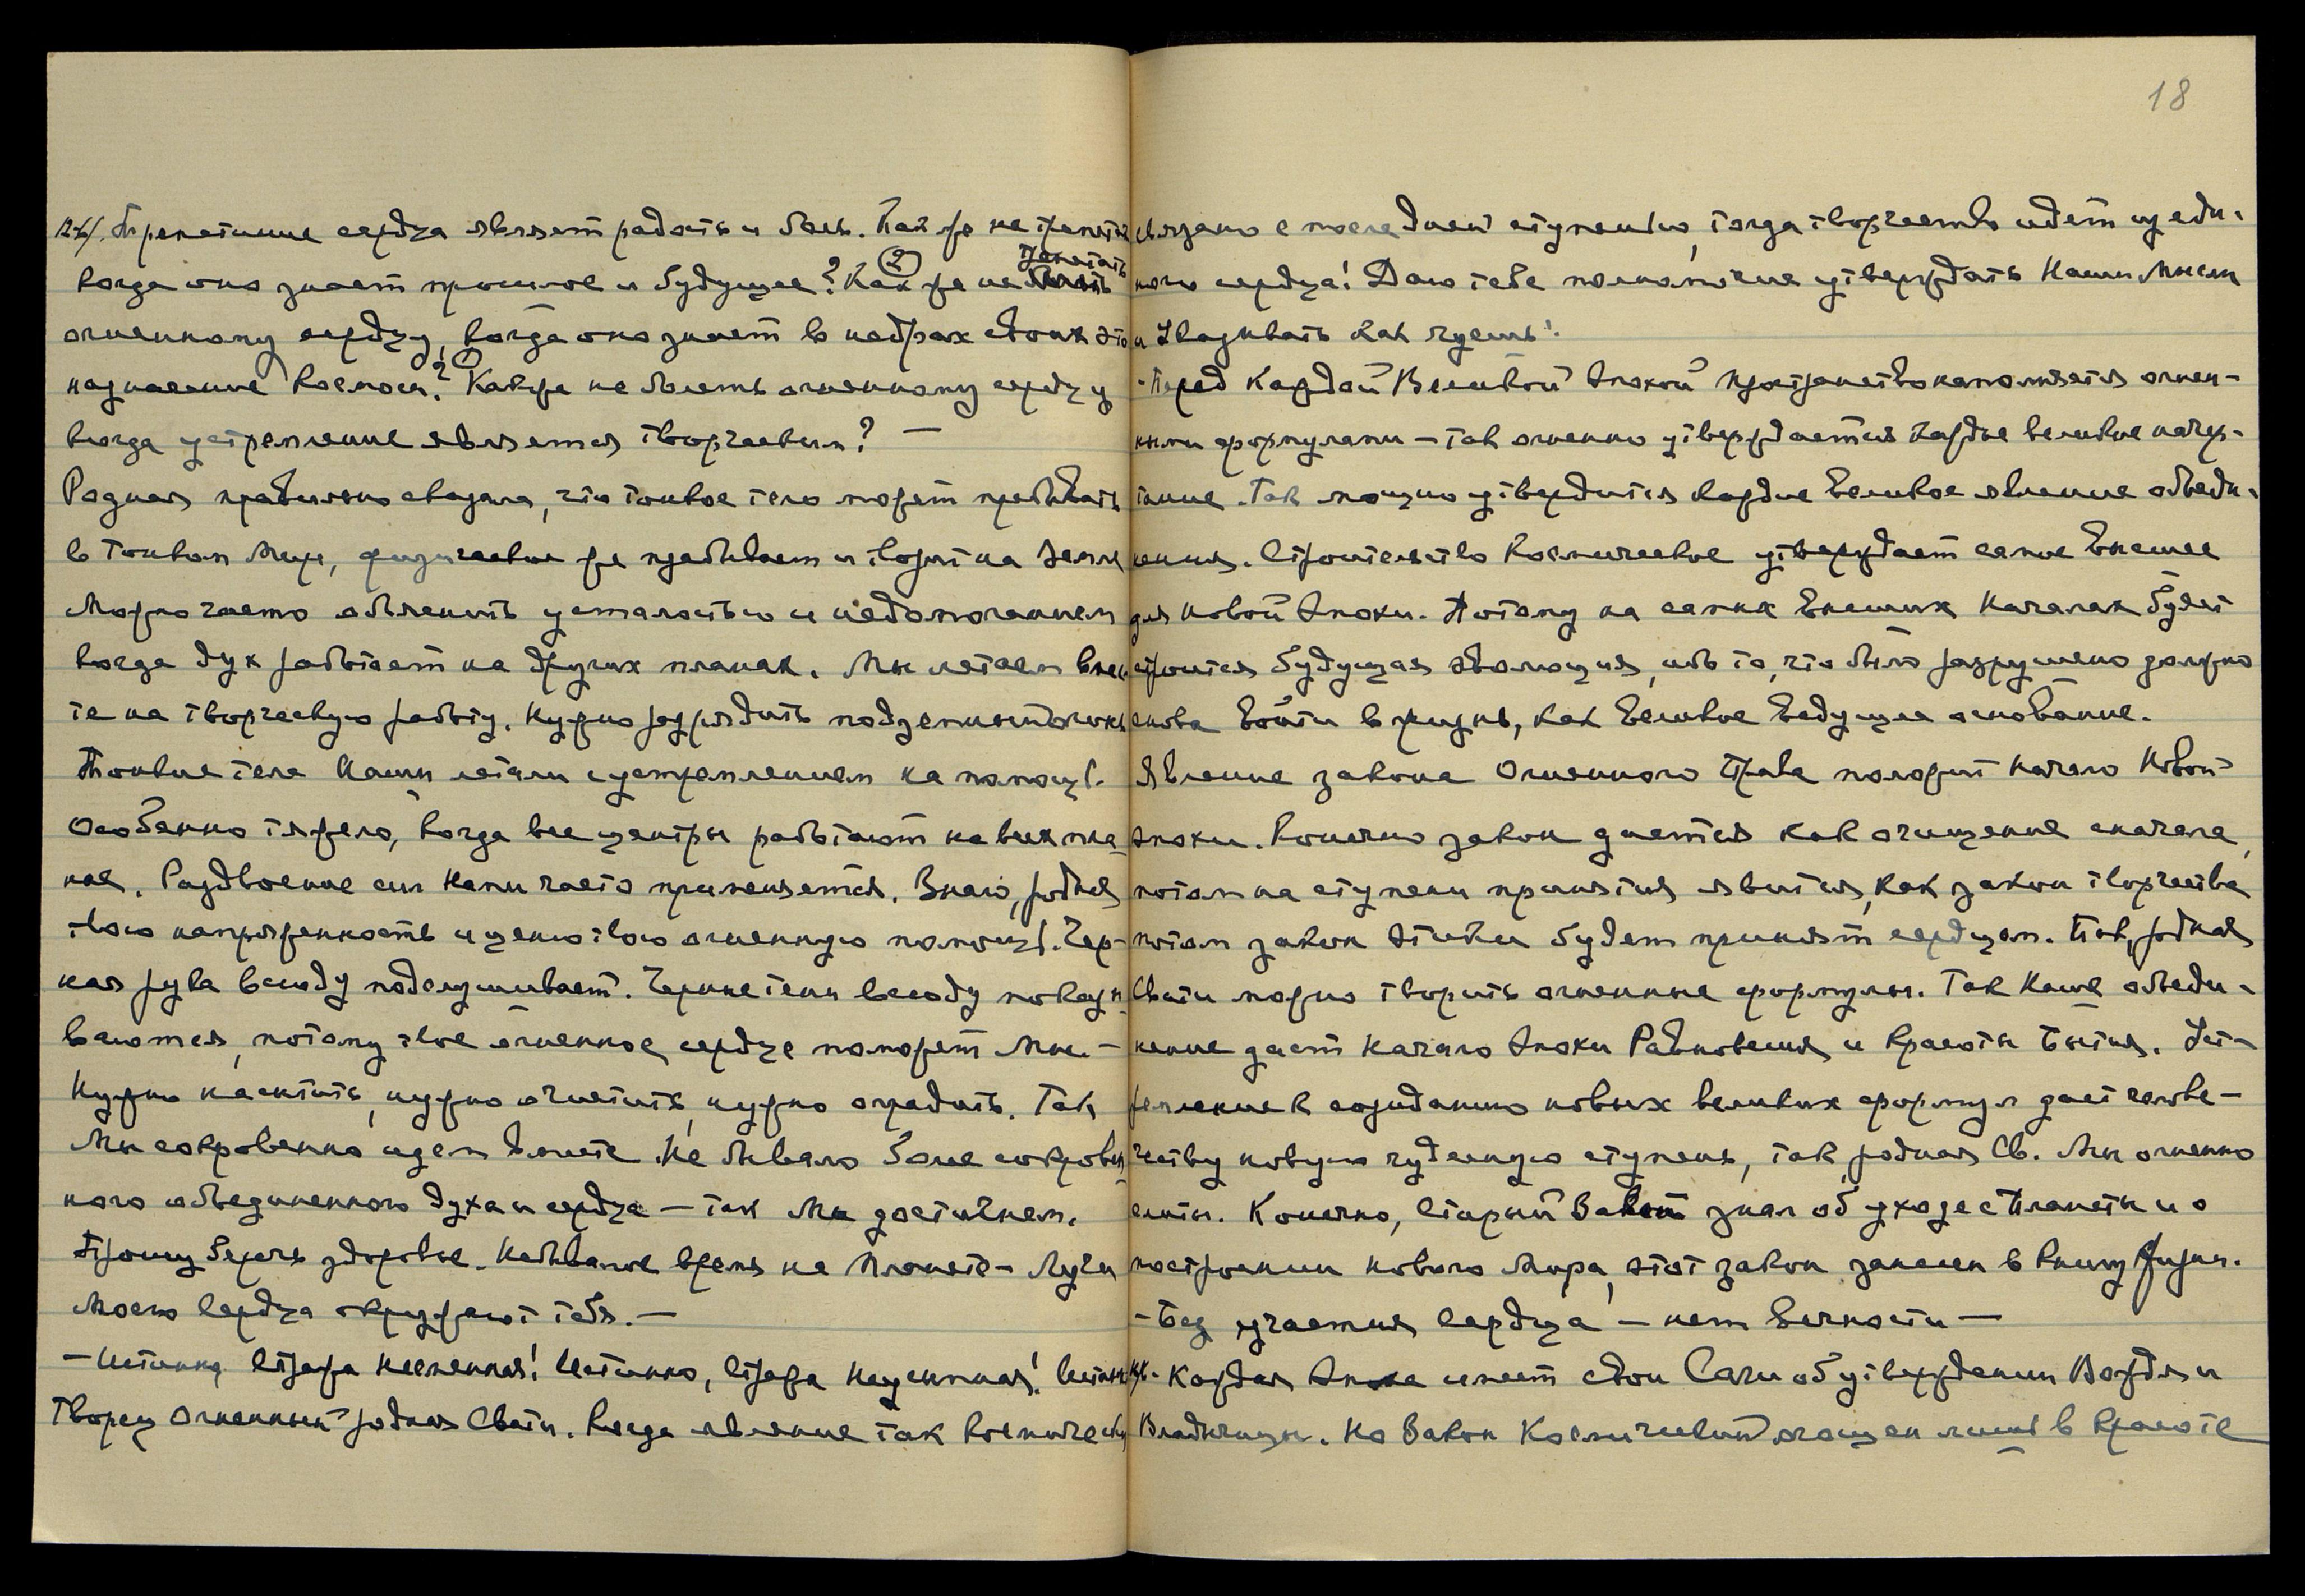 18
124/. Трепетание сердца являет радость и боль. Как же не трепетать
когда оно знает прошлое и будущее? Как же не трепетать
огненному сердцу, когда оно знает в недрах своих это
назначение Космоса? Как же не болеть огненному сердцу
когда устремление является творческим? —
Родная правильно сказала, что тонкое тело может пребывать
в Тонком Мире, физическое же пребывает и творит на Земле
Можно часто объяснить усталостью и недомоганием
когда дух работает на других планах. Мы летаем вмес-
те на творческую работу. Нужно разрядить подземный огонь
Тонкие тела Наши летали с устремлением на помощь.
Особенно тяжело, когда все центры работают на всех пла-
нах. Раздвоение сил Нами часто применяется. Знаю, родная
твою напряженность и ценю твою огненную помощь. Чер-
ная рука всюду подслушивает. Черные тени всюду показы-
ваются, потому твое огненное сердце поможет Мне. —
Нужно насытить, нужно очистить, нужно оградить. Так
Мы сокровенно идем вместе. Не бывало более сокровен-
ного объединенного духа и сердца — так Мы достигнем.
Прошу беречь здоровье. Небывалое время на Планете — Лучи
Моего Сердца окружают тебя. —
— Истинно, Стража Несменная! Истинно, Стража Неусыпная! Истинно,
Творец Огненный родная Свати. Когда явление так космически
связано с последней ступенью, тогда творчество идет из еди-
ного сердца! Даю тебе полномочие утверждать Наши Мысли
и указывать как чуешь!
— Перед Каждой Великой Эпохой пространство наполняется огнен-
ными формулами — так огненно утверждается каждое великое начер-
тание. Так мощно утвердится каждое Великое явление объеди-
нения. Строительство Космическое утверждает самое Высшее
для Новой Эпохи. Потому на самых Высших Началах будет
строится будущая эволюция, ибо то, что было разрушено должно
снова Войти в жизнь, как Великое Ведущее основание.
Явление закона Огненного Права положит начало Новой
Эпохи. Конечно закон дается как очищение сначала,
потом на ступени принятия явится, как закон творчества
потом закон Этики будет принят сердцем. Так, родная
Свати можно творить огненные формулы. Так Наше объеди-
нение даст начало Эпохи Равновесия и Красоты Бытия. Уст-
ремление к созиданию новых великих формул даст челове-
честву новую чудесную ступень, так, родная Св. Мы огненно
слиты. Конечно, Старый Завет знал об уходе с Планеты и о
построении нового Мира, этот закон занесен в Книгу Жизни.
— Без участия Сердца — нет Вечности —
Каждая Эпоха имеет свои Саги об утверждении Вождя и
Владычицы. Но Закон Космический огящен лишь в Красоте